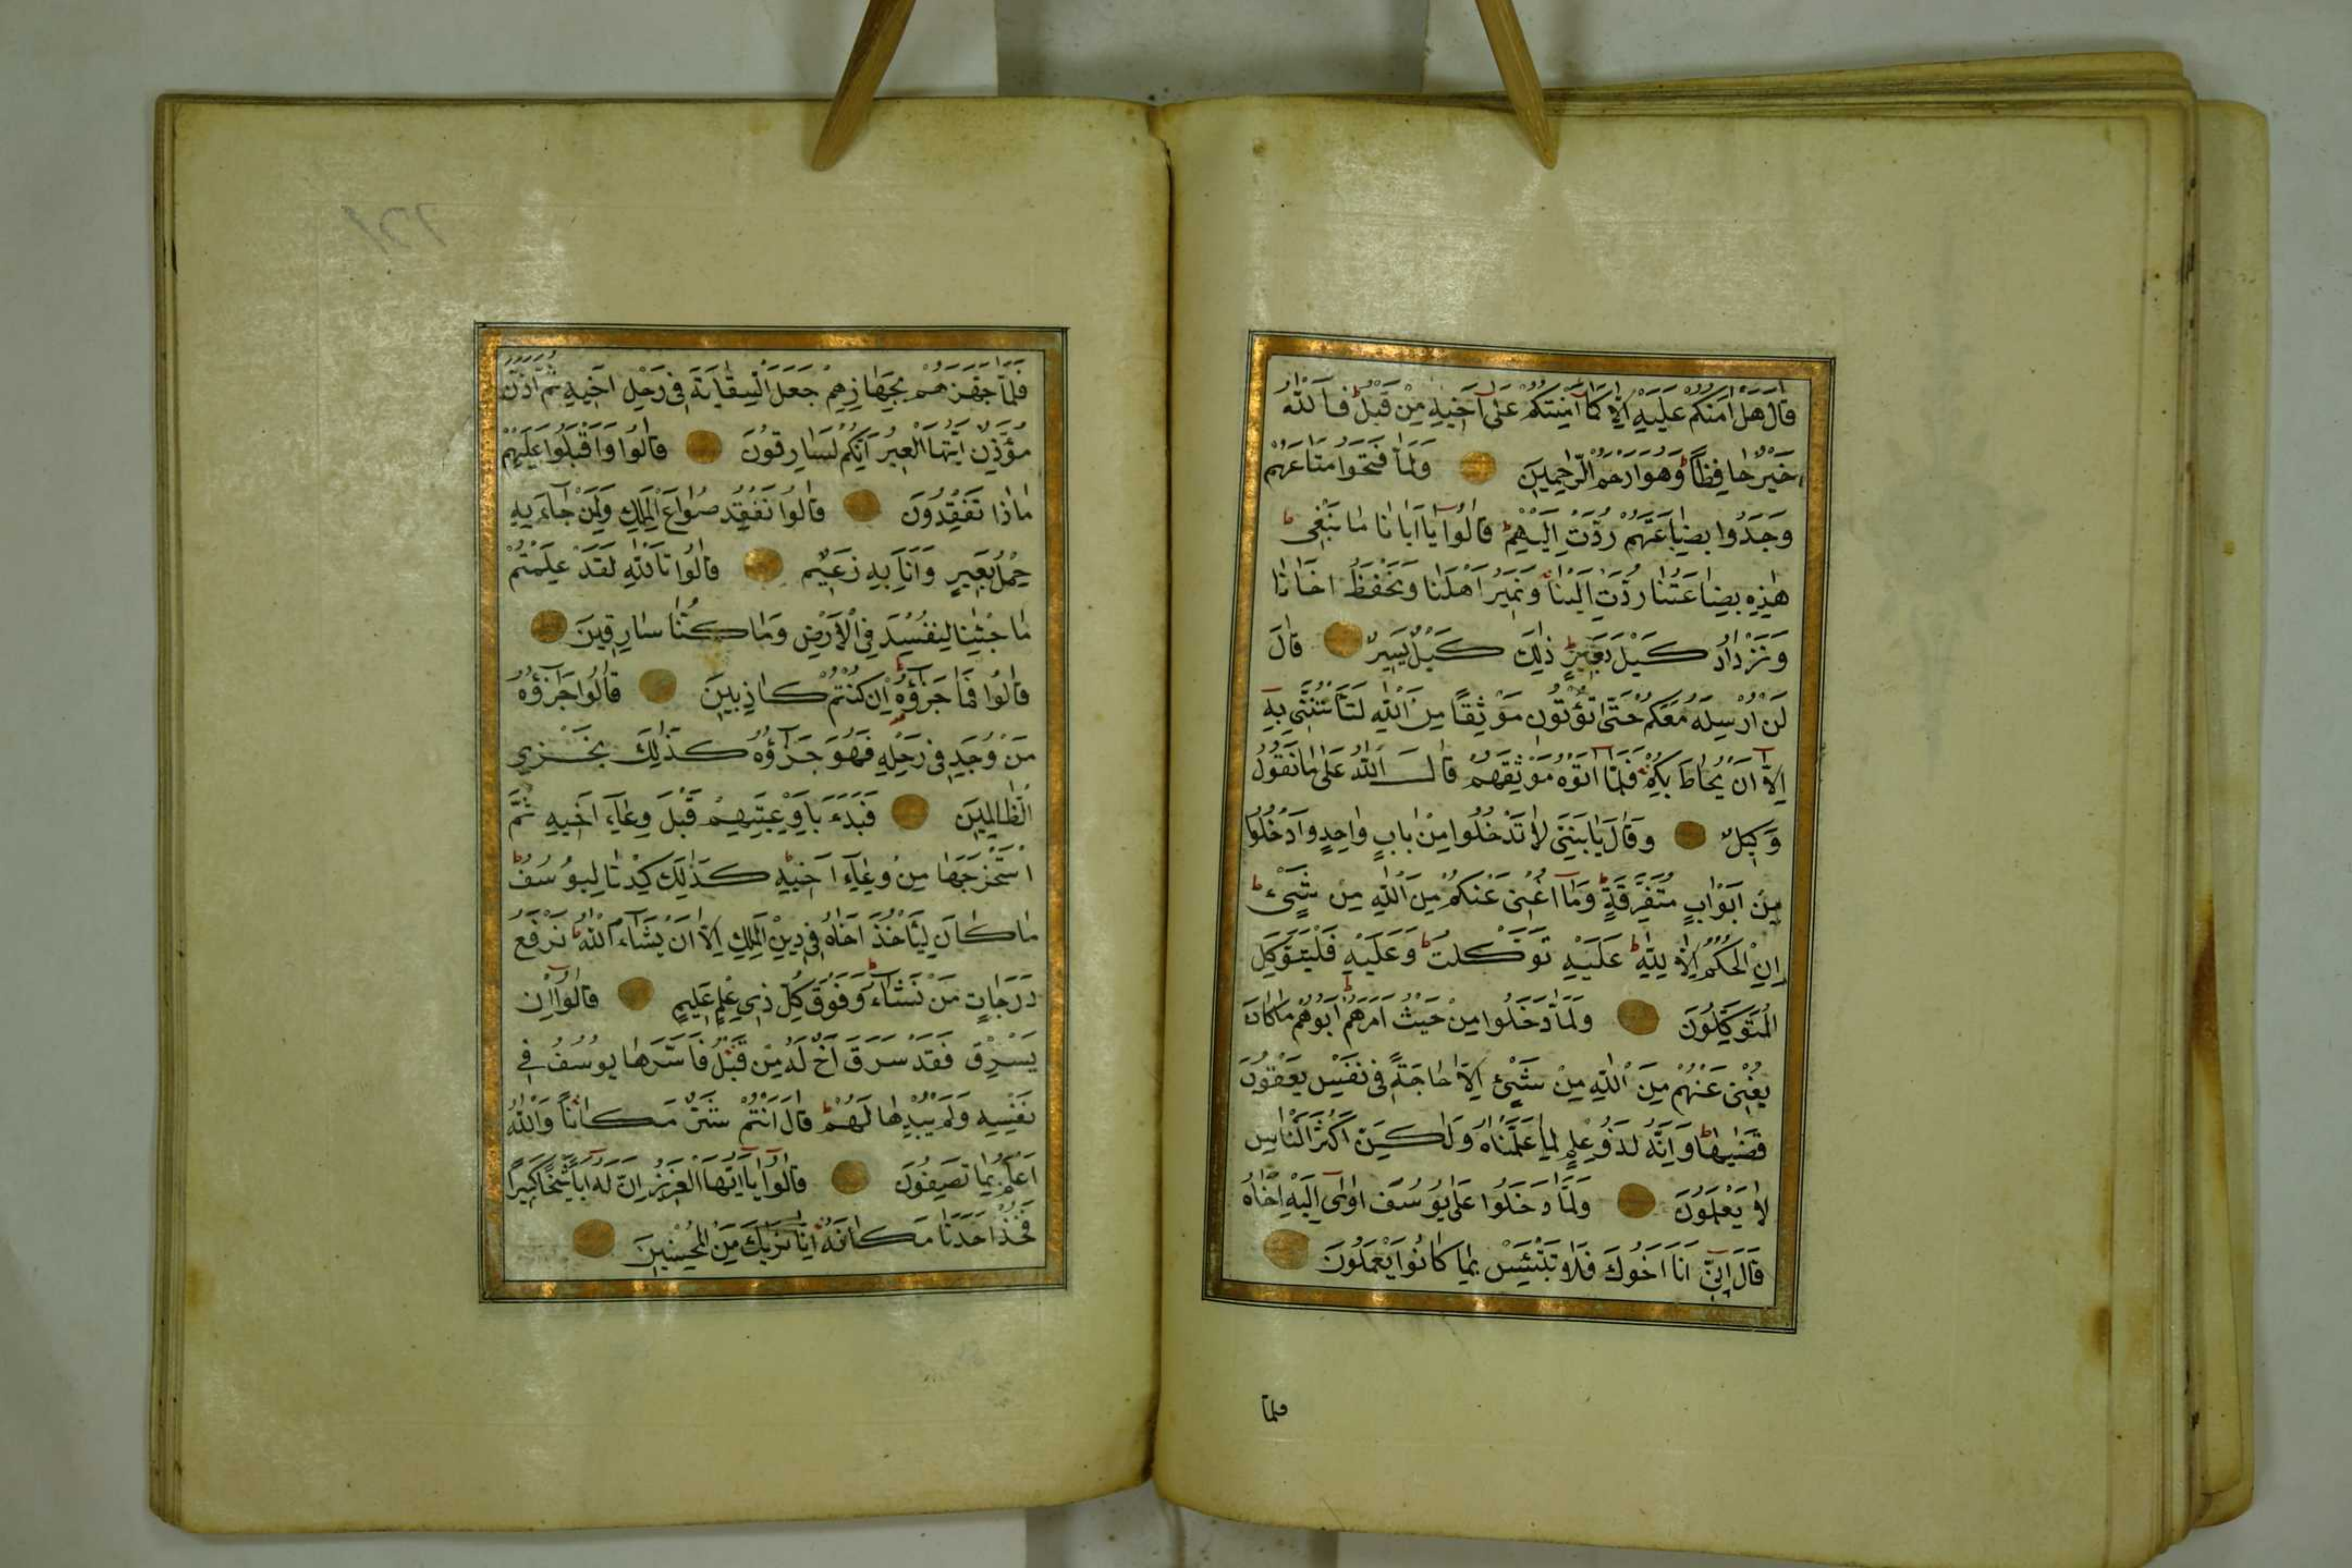 قَالَ هَلْ اٰمَنُكُمْ عَلَيْهِ اِلَّا كَمَٓا اَمِنْتُكُمْ عَلٰٓى اَخِيهِ مِنْ قَبْلُ ط فَاللّٰهُ
خَيْرٌ حَافِظًا ط وَهُوَ اَرْحَمُ الرَّاحِمِينَ وَلَمَّا فَتَحُوا مَتَاعَهُمْ
وَجَدُوا بِضَاعَتَهُمْ رُدَّتْ اِلَيْهِمْ ط قَالُوا يَٓا اَبَانَا مَا نَبْغِي ط
هٰذِهِ بِضَاعَتُنَا رُدَّتْ اِلَيْنَا وَنَمِيرُ اَهْلَنَا وَنَحْفَظُ اَخَانَا
وَنَزْدَادُ كَيْلَ بَعِيرٍ ط ذٰلِكَ كَيْلٌ يَسِيرٌ قَالَ
لَنْ اُرْسِلَهُ مَعَكُمْ حَتّٰى تُؤْتُونِ مَوْثِقًا مِنَ اللّٰهِ لَتَأْتُنَّنِي بِهِٓ
اِلَّٓا اَنْ يُحَاطَ بِكُمْ فَلَمَّٓا اٰتَوْهُ مَوْثِقَهُمْ قَالَ اللّٰهُ عَلٰى مَا نَقُولُ
وَكِيلٌ وَقَالَ يَا بَنِيَّ لَا تَدْخُلُوا مِنْ بَابٍ وَاحِدٍ وَادْخُلُوا
مِنْ اَبْوَابٍ مُتَفَرِّقَةٍ ط وَمَٓا اُغْنِي عَنْكُمْ مِنَ اللّٰهِ مِنْ شَيْءٍ ط
اِنِ الْحُكْمُ اِلَّا لِلّٰهِ ط عَلَيْهِ تَوَكَّلْتُ ط وَعَلَيْهِ فَلْيَتَوَكَّلِ
الْمُتَوَكِّلُونَ وَلَمَّا دَخَلُوا مِنْ حَيْثُ اَمَرَهُمْ اَبُوهُمْ ط مَا كَانَ
يُغْنِي عَنْهُمْ مِنَ اللّٰهِ مِنْ شَيْءٍ اِلَّا حَاجَةً فِي نَفْسِ يَعْقُوبَ
قَضٰيهَا ط وَاِنَّهُ لَذُو عِلْمٍ لِمَا عَلَّمْنَاهُ وَلٰكِنَّ اَكْثَرَ النَّاسِ
لَا يَعْلَمُونَ وَلَمَّا دَخَلُوا عَلٰى يُوسُفَ اٰوٰٓى اِلَيْهِ اَخَاهُ
قَالَ اِنِّٓي اَنَا اَخُوكَ فَلَا تَبْتَئِسْ بِمَا كَانُوا يَعْمَلُونَ
فلما
٢٢١
فَلَمَّا جَهَّزَهُمْ بِجَهَازِهِمْ جَعَلَ السِّقَايَةَ فِي رَحْلِ اَخِيهِ ثُمَّ اَذَّنَ
مُؤَذِّنٌ اَيَّتُهَا الْعِيرُ اِنَّكُمْ لَسَارِقُونَ قَالُوا وَاَقْبَلُوا عَلَيْهِمْ
مَاذَا تَفْقِدُونَ قَالُوا نَفْقِدُ صُوَاعَ الْمَلِكِ وَلِمَنْ جَٓاءَ بِهِ
حِمْلُ بَعِيرٍ وَاَنَا بِهِ زَعِيمٌ قَالُوا تَاللّٰهِ لَقَدْ عَلِمْتُمْ
مَا جِئْنَا لِنُفْسِدَ فِي الْاَرْضِ وَمَا كُنَّا سَارِقِينَ
قَالُوا فَمَا جَزَٓؤُهُٓ اِنْ كُنْتُمْ كَاذِبِينَ قَالُوا جَزَٓؤُهُ
مَنْ وُجِدَ فِي رَحْلِهِ فَهُوَ جَزَٓؤُهُ كَذٰلِكَ نَجْزِي
الظَّالِمِينَ فَبَدَءَ بِاَوْعِيَتِهِمْ قَبْلَ وِعَٓاءِ اَخِيهِ ثُمَّ
اسْتَخْرَجَهَا مِنْ وِعَٓاءِ اَخِيهِ ط كَذٰلِكَ كِدْنَا لِيُوسُفَ ط
مَا كَانَ لِيَأْخُذَ اَخَاهُ فِي دِينِ الْمَلِكِ اِلَّٓا اَنْ يَشَٓاءَ اللّٰهُ ط نَرْفَعُ
دَرَجَاتٍ مَنْ نَشَٓاءُ ط وَفَوْقَ كُلِّ ذِي عِلْمٍ عَلِيمٌ قَالُٓوا اِنْ
يَسْرِقْ فَقَدْ سَرَقَ اَخٌ لَهُ مِنْ قَبْلُ فَاَسَرَّهَا يُوسُفُ فِي
نَفْسِهِ وَلَمْ يُبْدِهَا لَهُمْ ط قَالَ اَنْتُمْ شَرٌّ مَكَانًا وَاللّٰهُ
اَعْلَمُ بِمَا تَصِفُونَ قَالُوا يَٓا اَيُّهَا الْعَزِيزُ اِنَّ لَهُٓ اَبًا شَيْخًا كَبِيرًا
فَخُذْ اَحَدَنَا مَكَانَهُ اِنَّا نَرٰيكَ مِنَ الْمُحْسِنِينَ